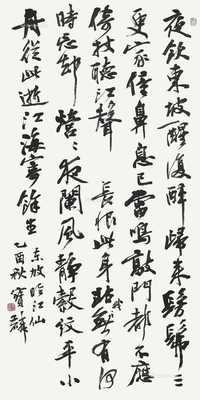 夜飲東坡醒復醉歸來髣髴三
更家僮鼻息已雷鳴敲門都不應
倚杖聽江聲 長恨此身非我有何
時忘却營〻夜闌風靜縠紋平小
舟從此逝江海寄餘生
東坡臨江仙
乙酉秋寶麟